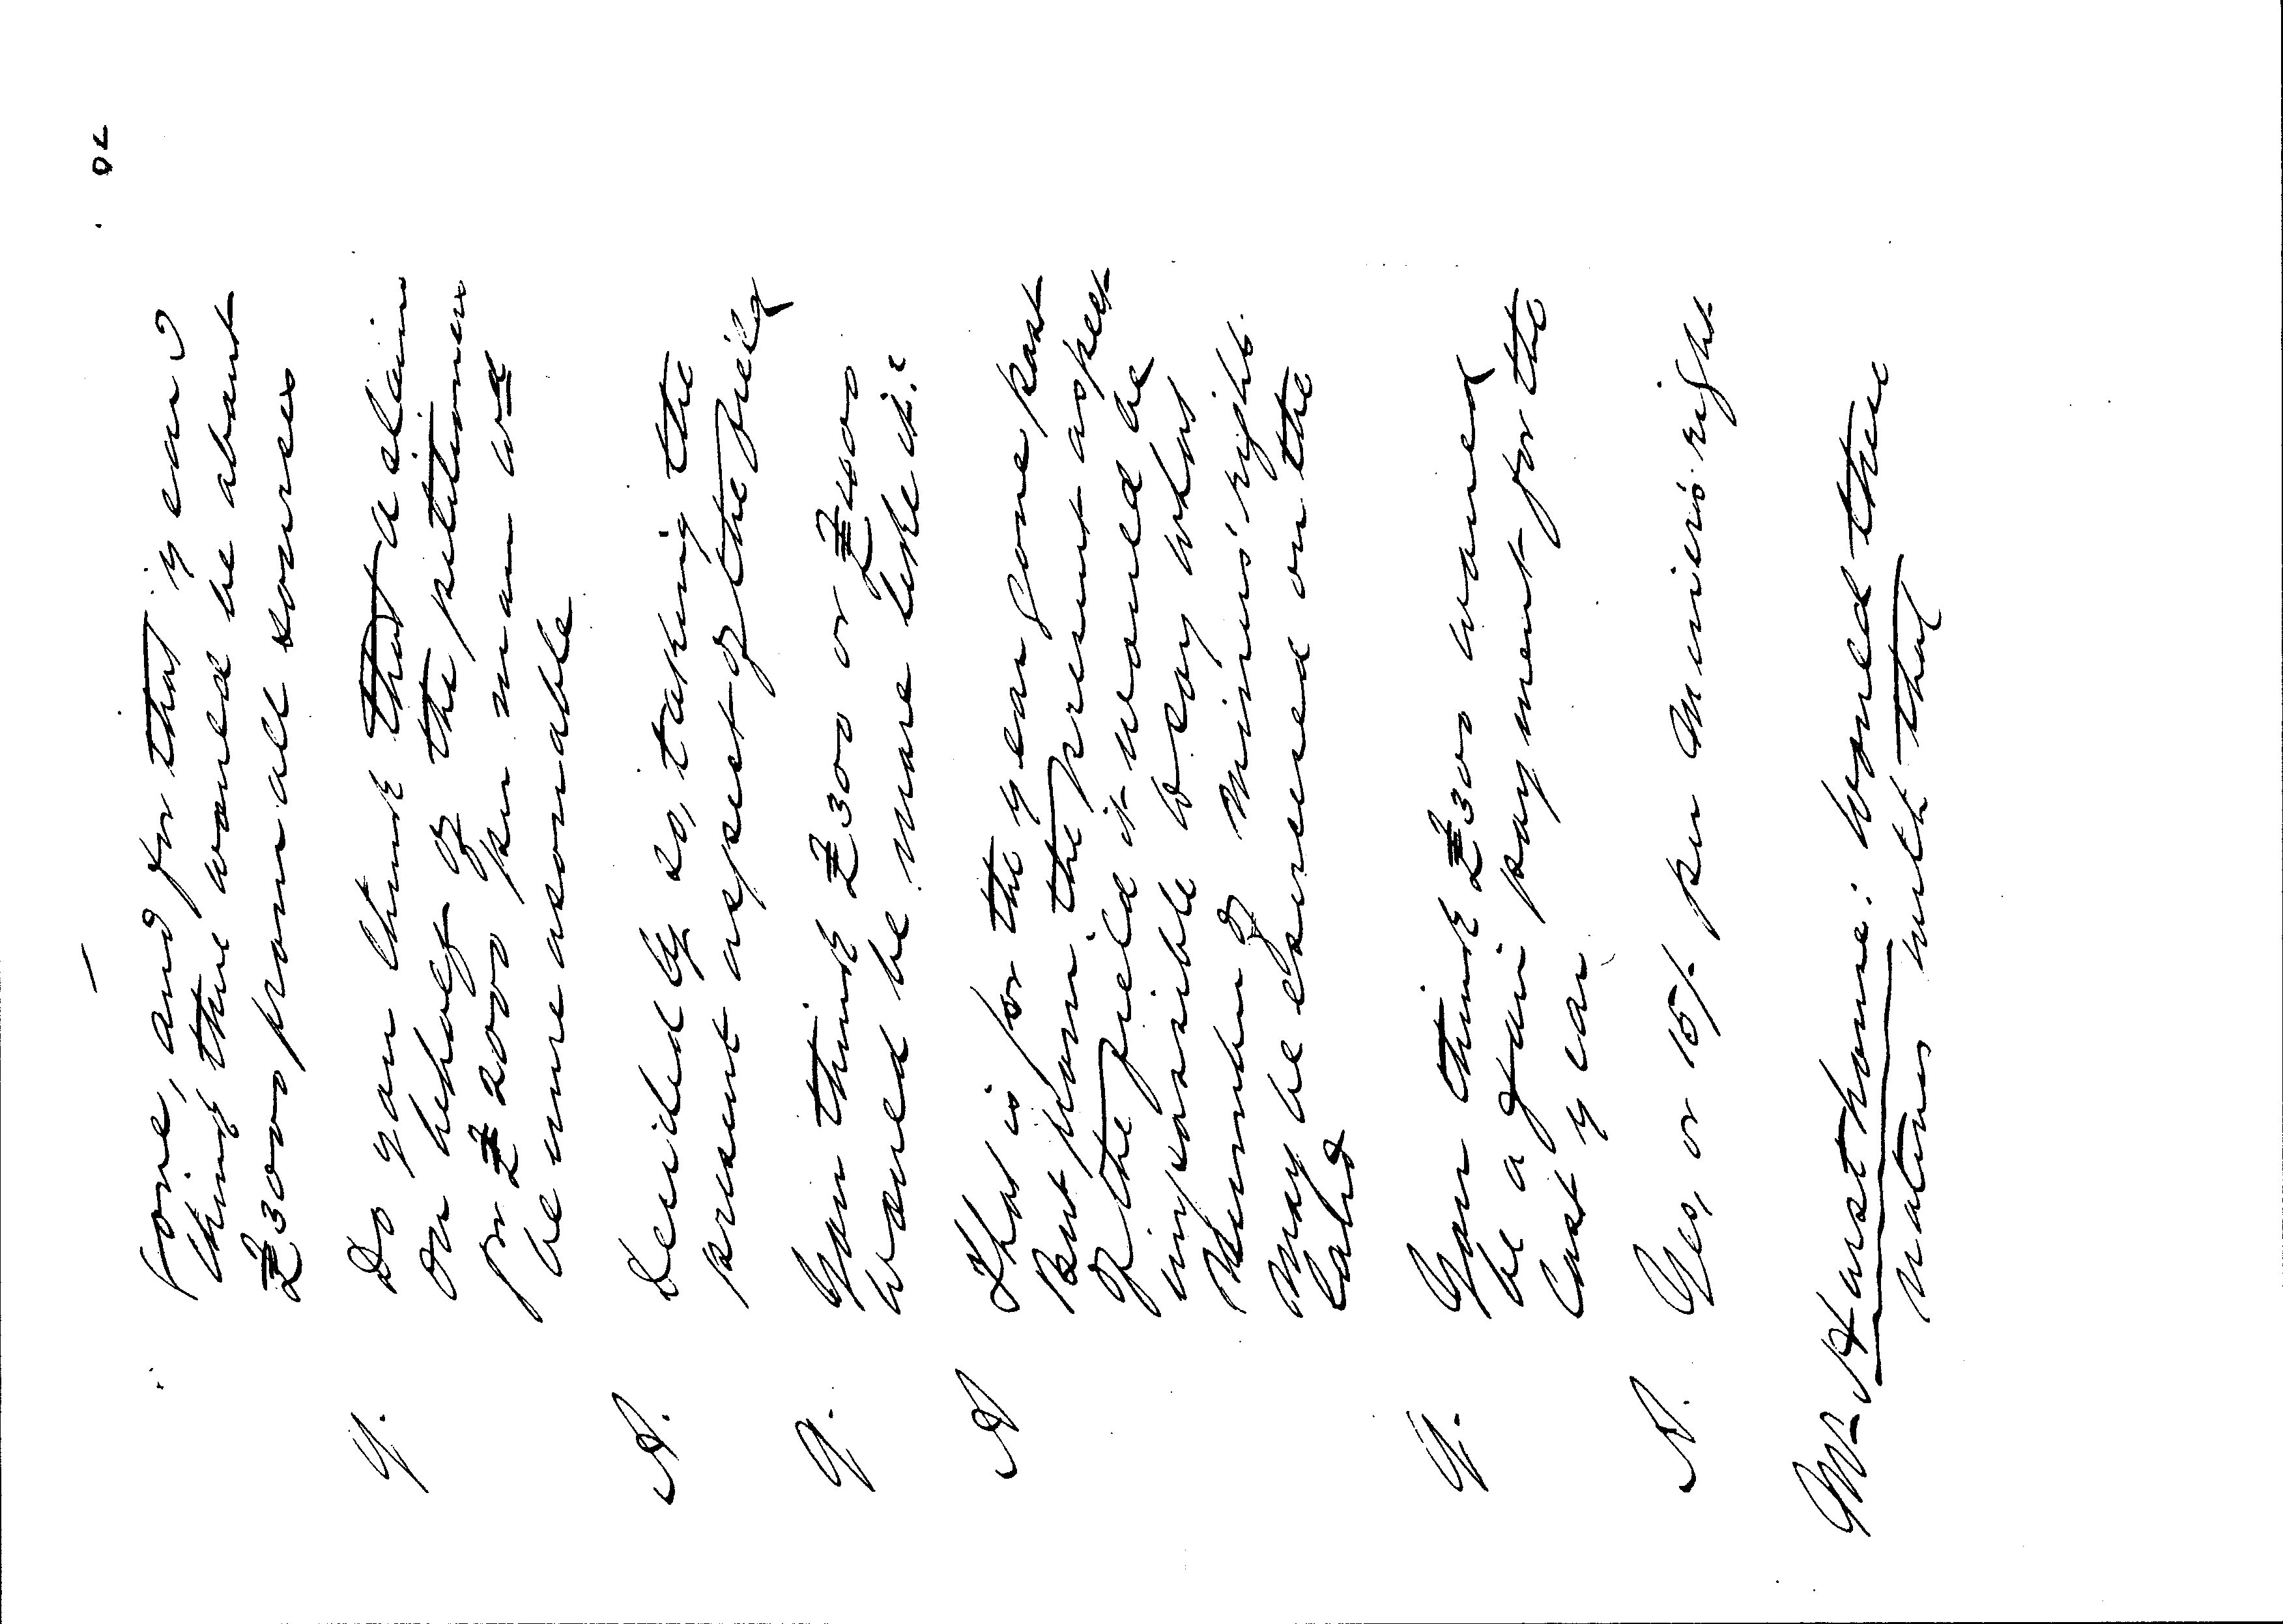 70
tone, and for that year I
think there would be about
£3000 from all sources
Q. Do you think that a claim
on behalf of the petitioners
for £2000 per man wd
be unreasonable
A. Decidedly so, taking the
present aspect of the field
Q. You think £300 or £400
would be more like it?
A That is for the year gone past
But from the present aspect
of the field it would be
impossible to say what
Number of Miners' rights
May be exercised on the
land
Q. You think £300 would
be a fair payment for the
last year
A. Yes, or 15/- per Miner's right
Mr Hawthorne: Would the
natives with that